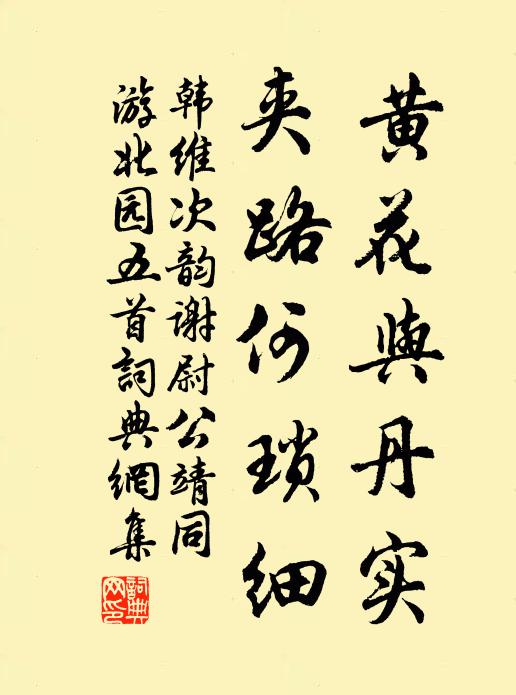 黄花與丹实
夹路何琐细
韩维次韵谢尉公靖同
游北园五首詞典網集
詞典